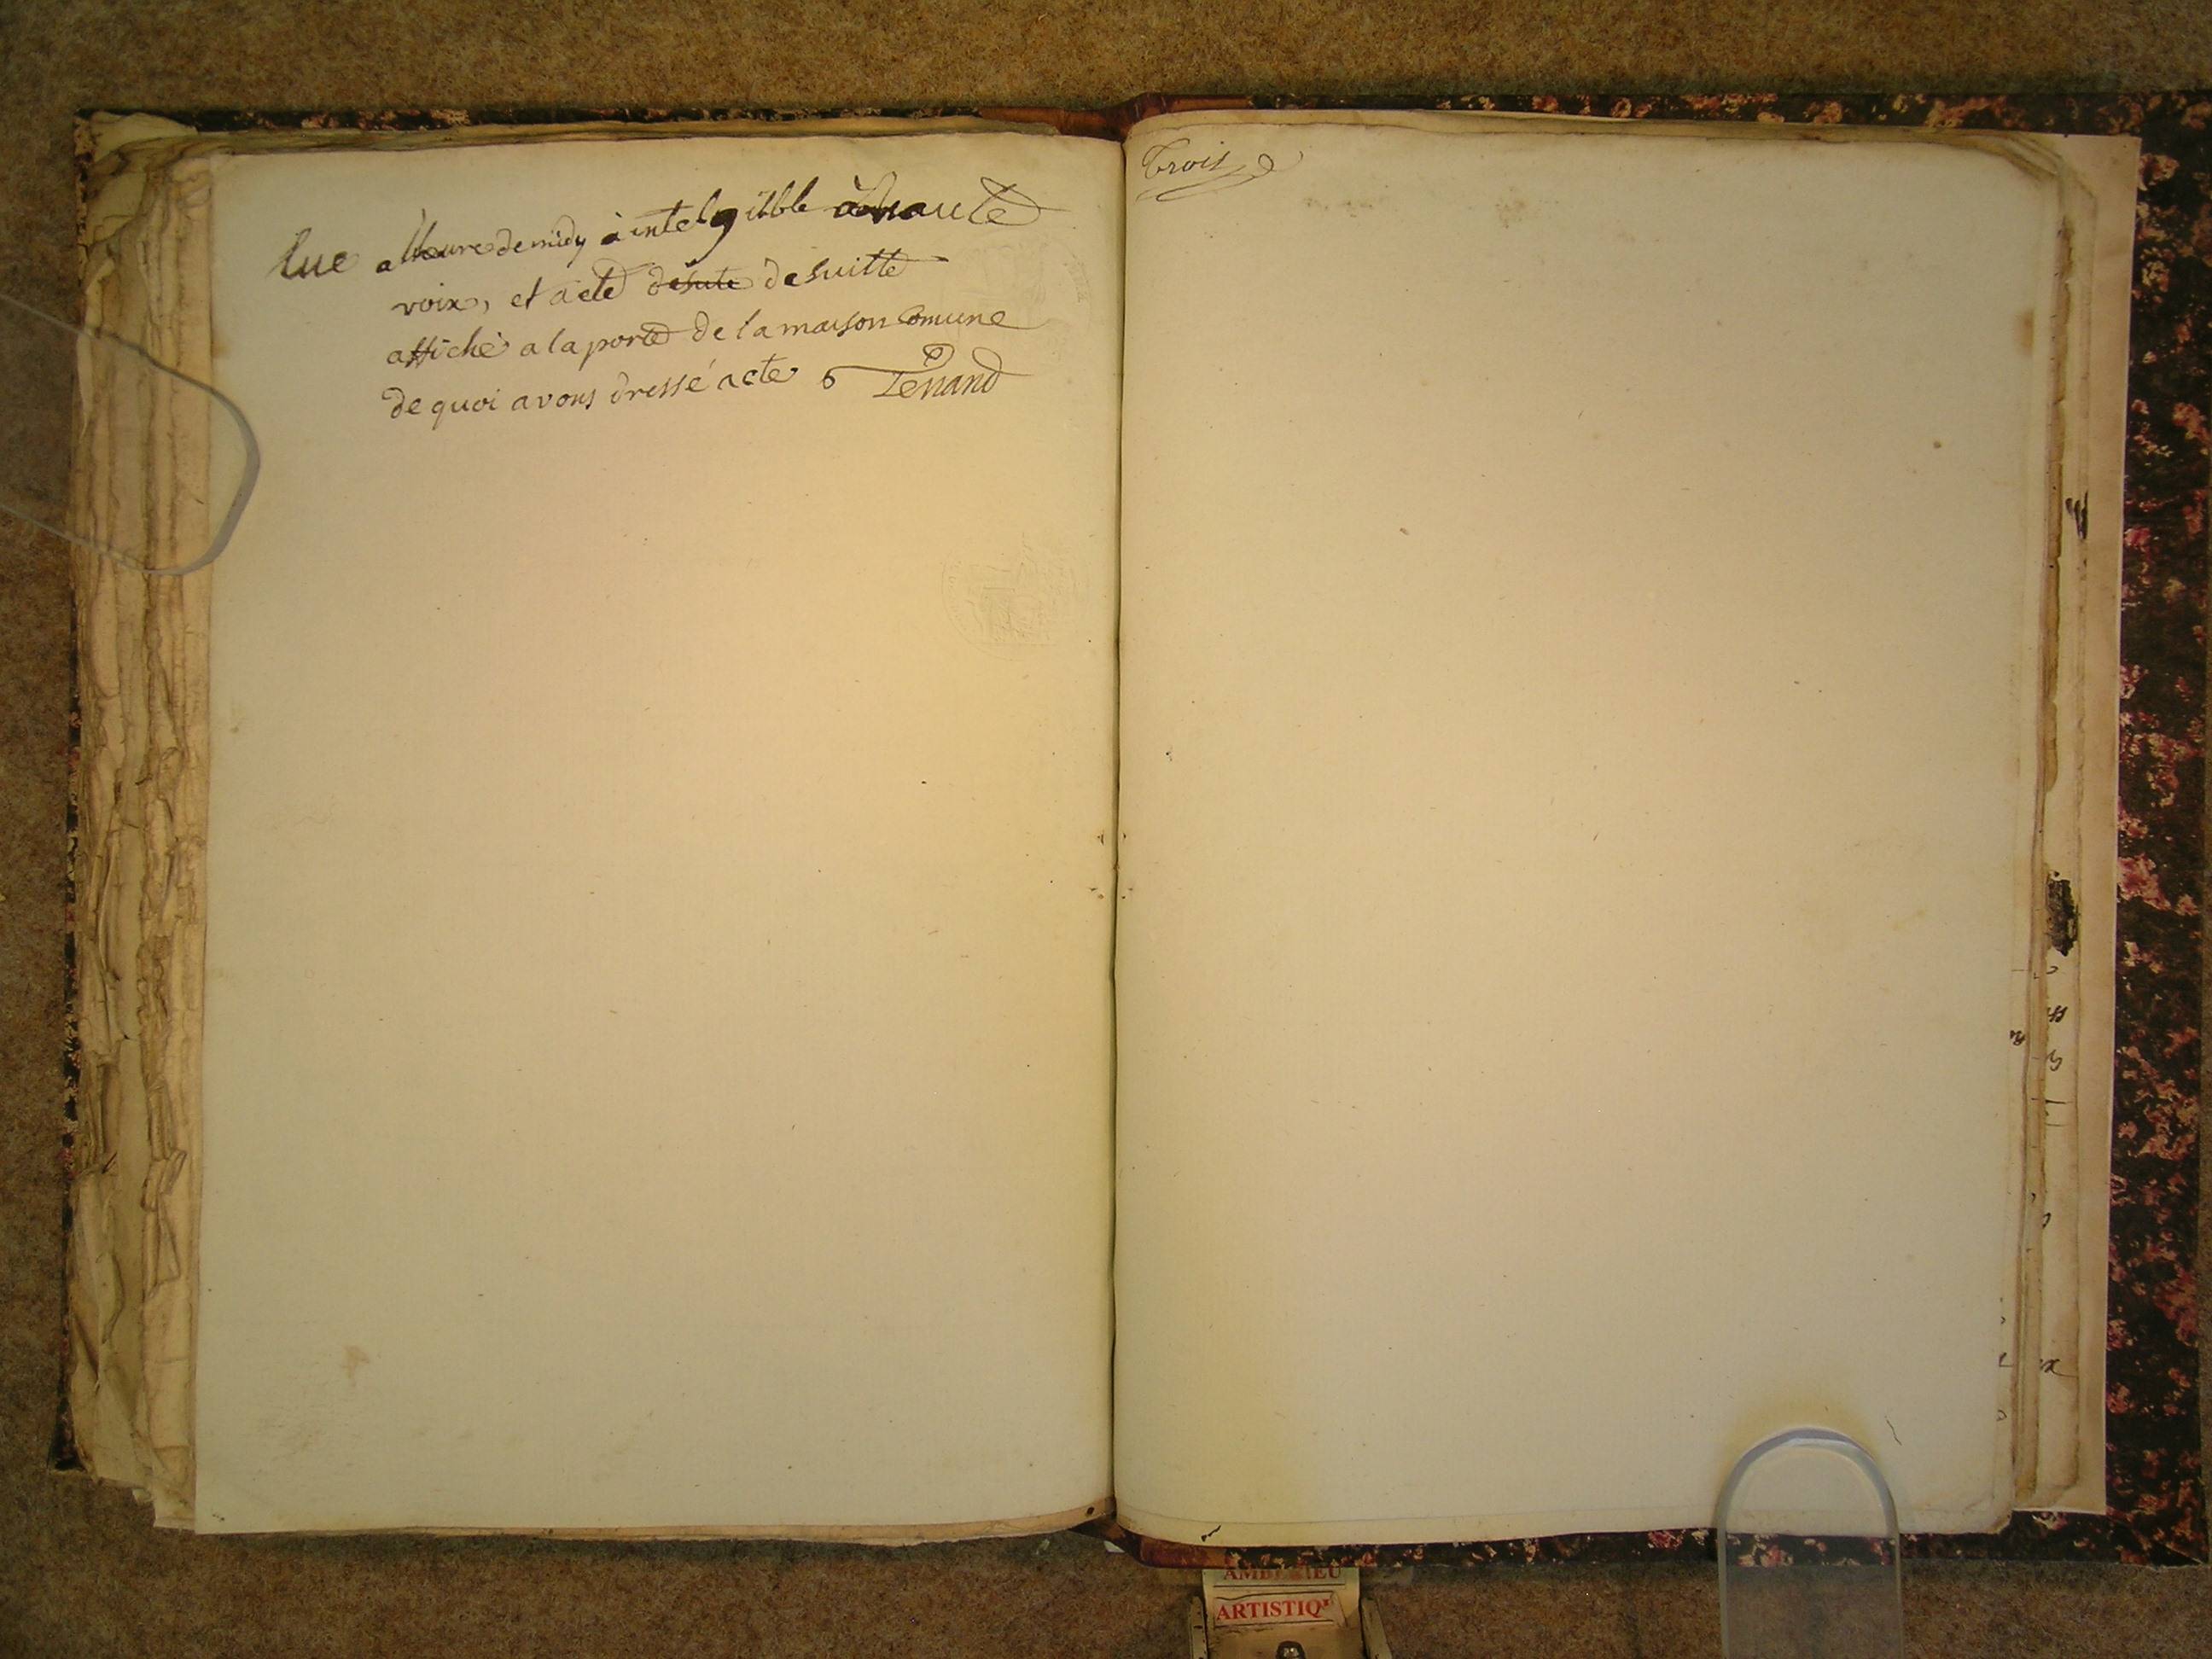 lue a lheure de midy à intelgible à haute
voix, et a eté desute de suitte
affiché a la porte de la maison Comune
de quoi avons dressé acte
Trois
ARTISTIQ